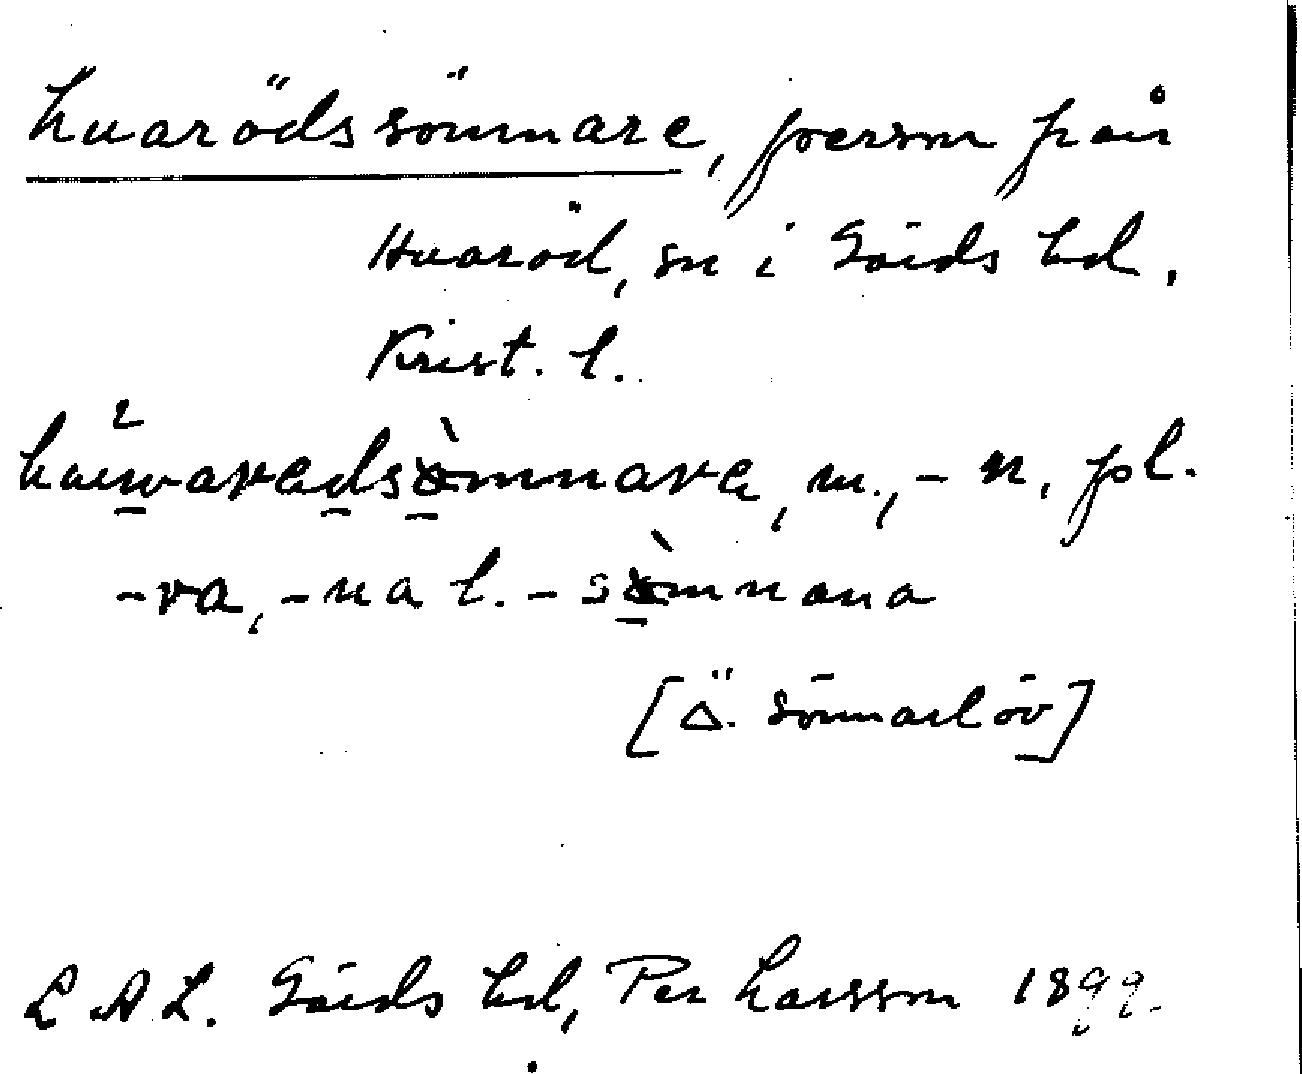 huarödssömnare, person från
Huaröd, sn i Gärds hd,
Krist. l.
m., -n, pl.
-ra, -na l. -sömnana
[Ö. Sönnarslöv]
L A L. Gärds hd, Per Larsson 1899.